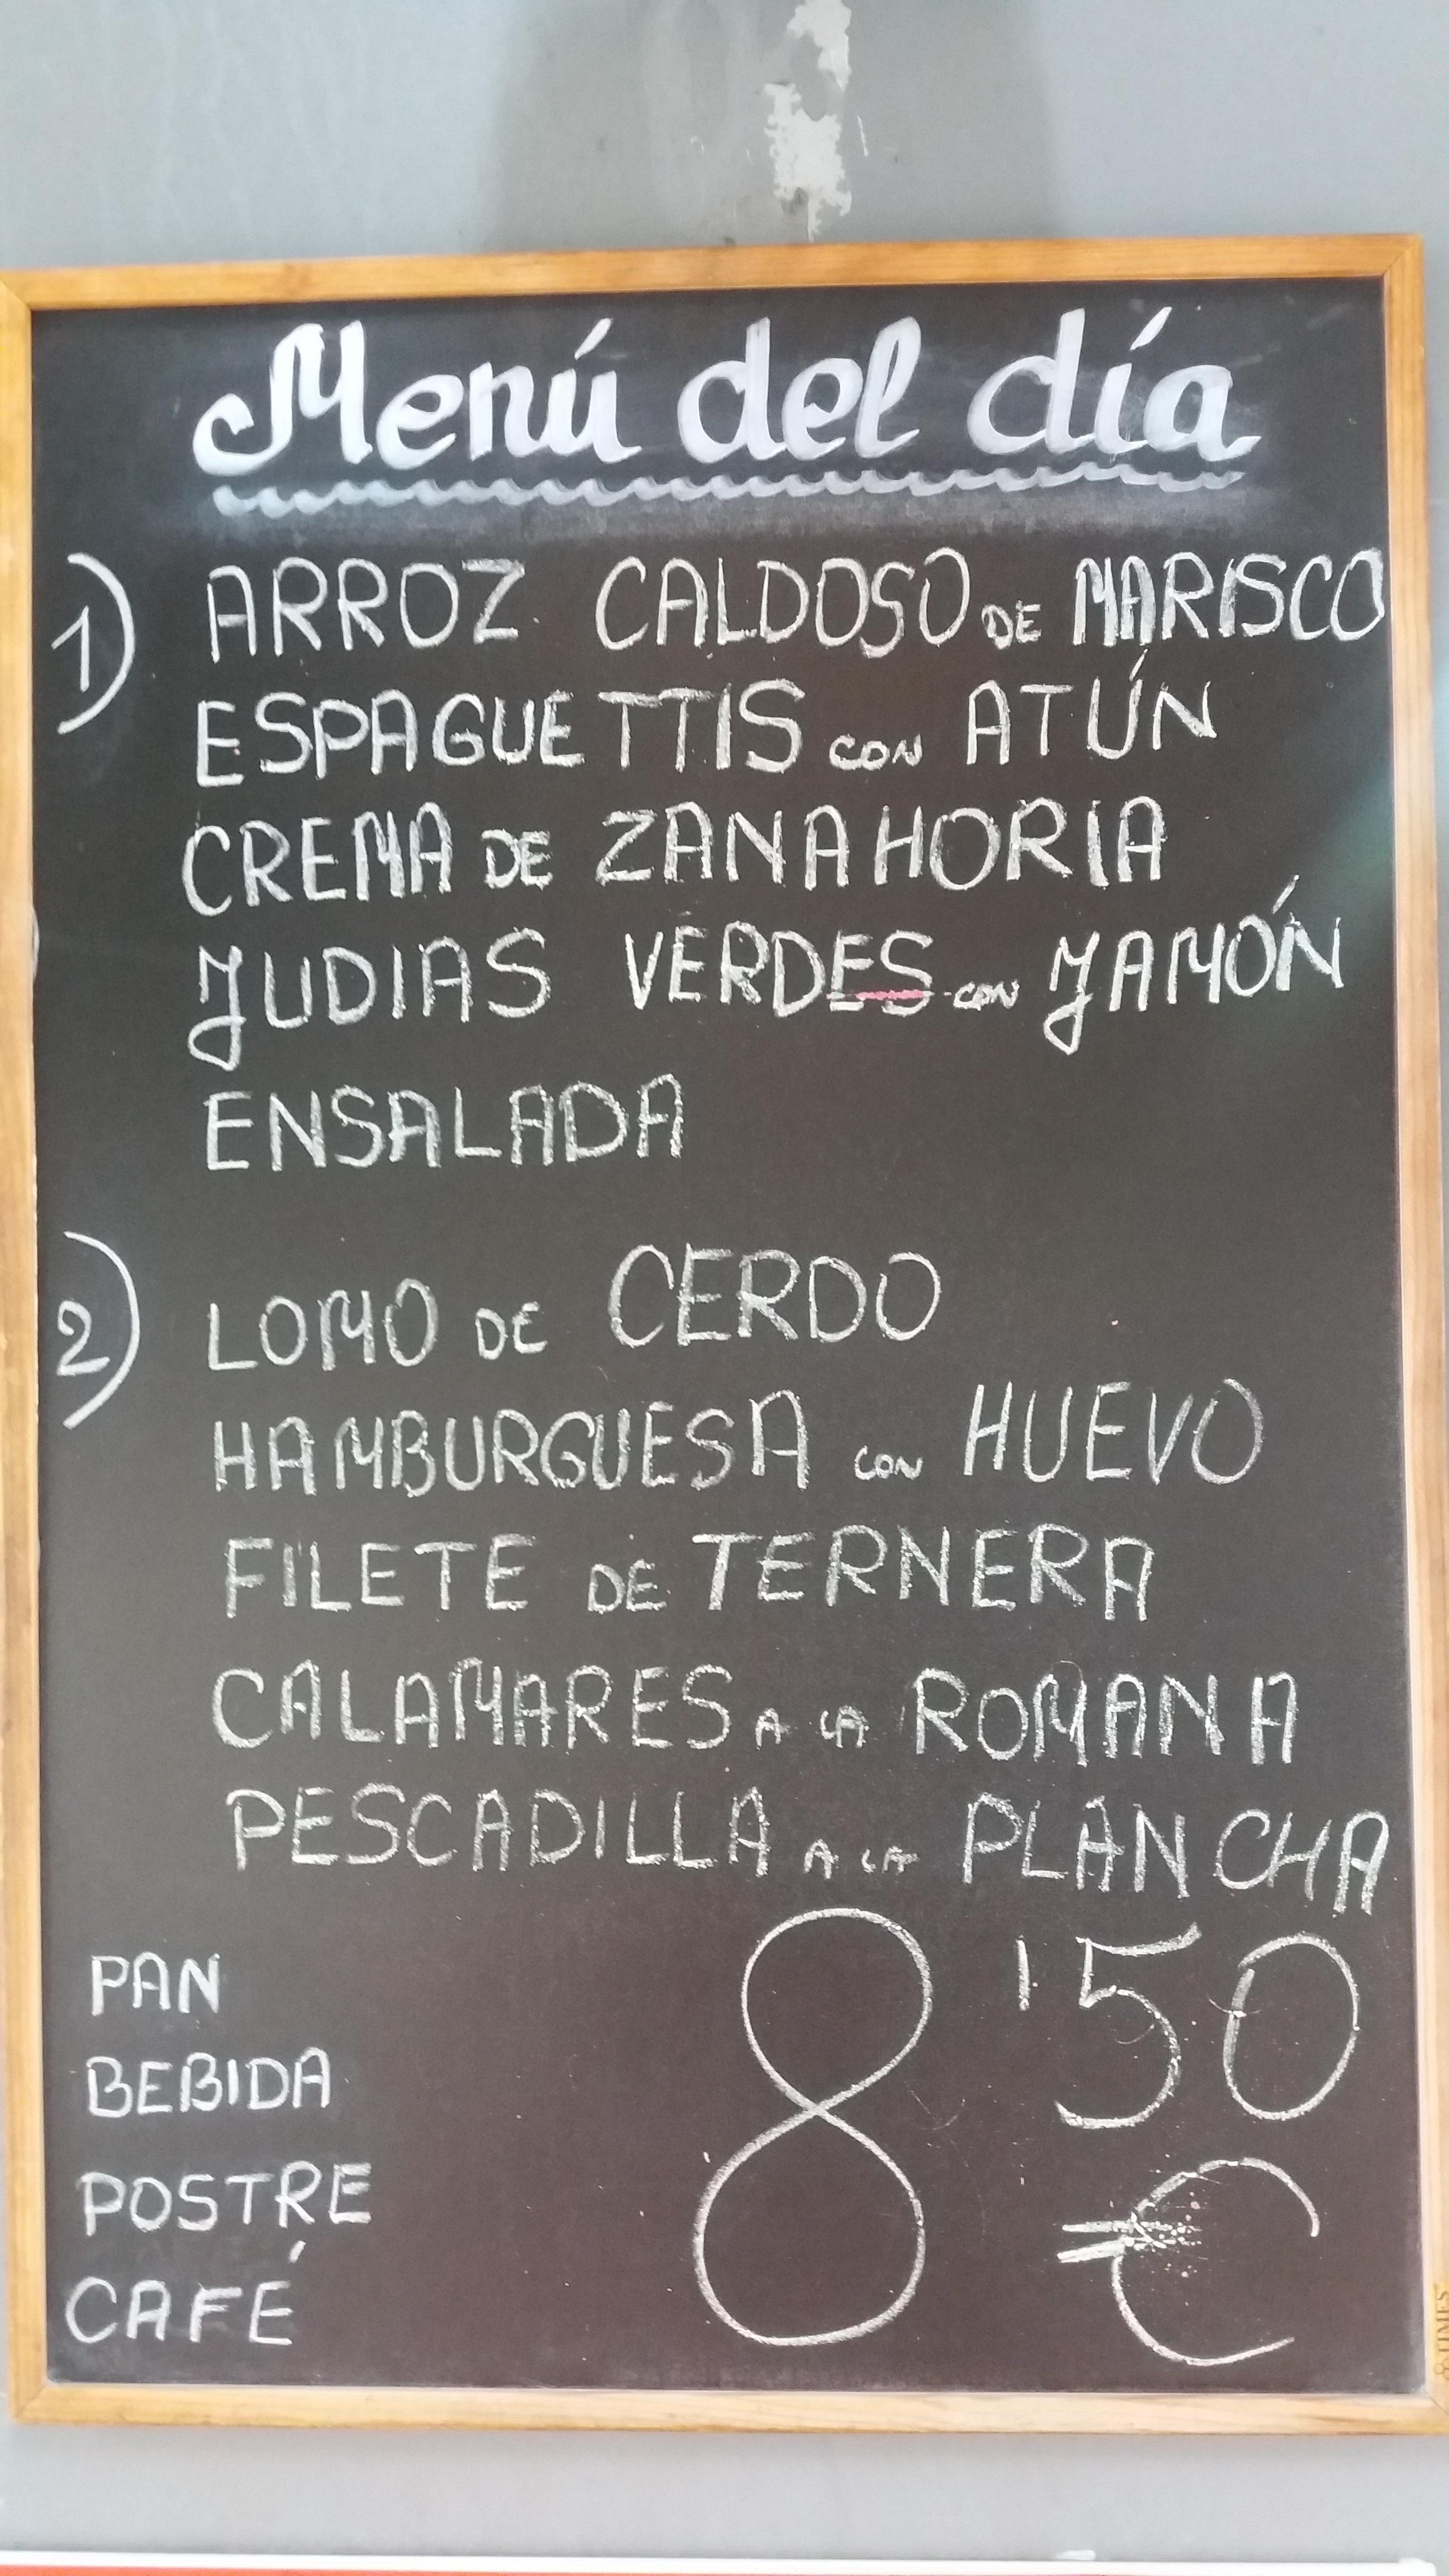 Menú del día
1) ARROZ CALDOSO DE MARISCO
ESPAGUETTIS CON ATÚN
CREMA DE ZANAHORIA
JUDIAS VERDES CON JAMÓN
ENSALADA
2) LOMO DE CERDO
HAMBURGUESA CON HUEVO
FILETE DE TERNERA
CALAMARES A LA ROMANA
PESCADILLA A LA PLANCHA
PAN
BEBIDA
POSTRE
CAFÉ
8'50
€